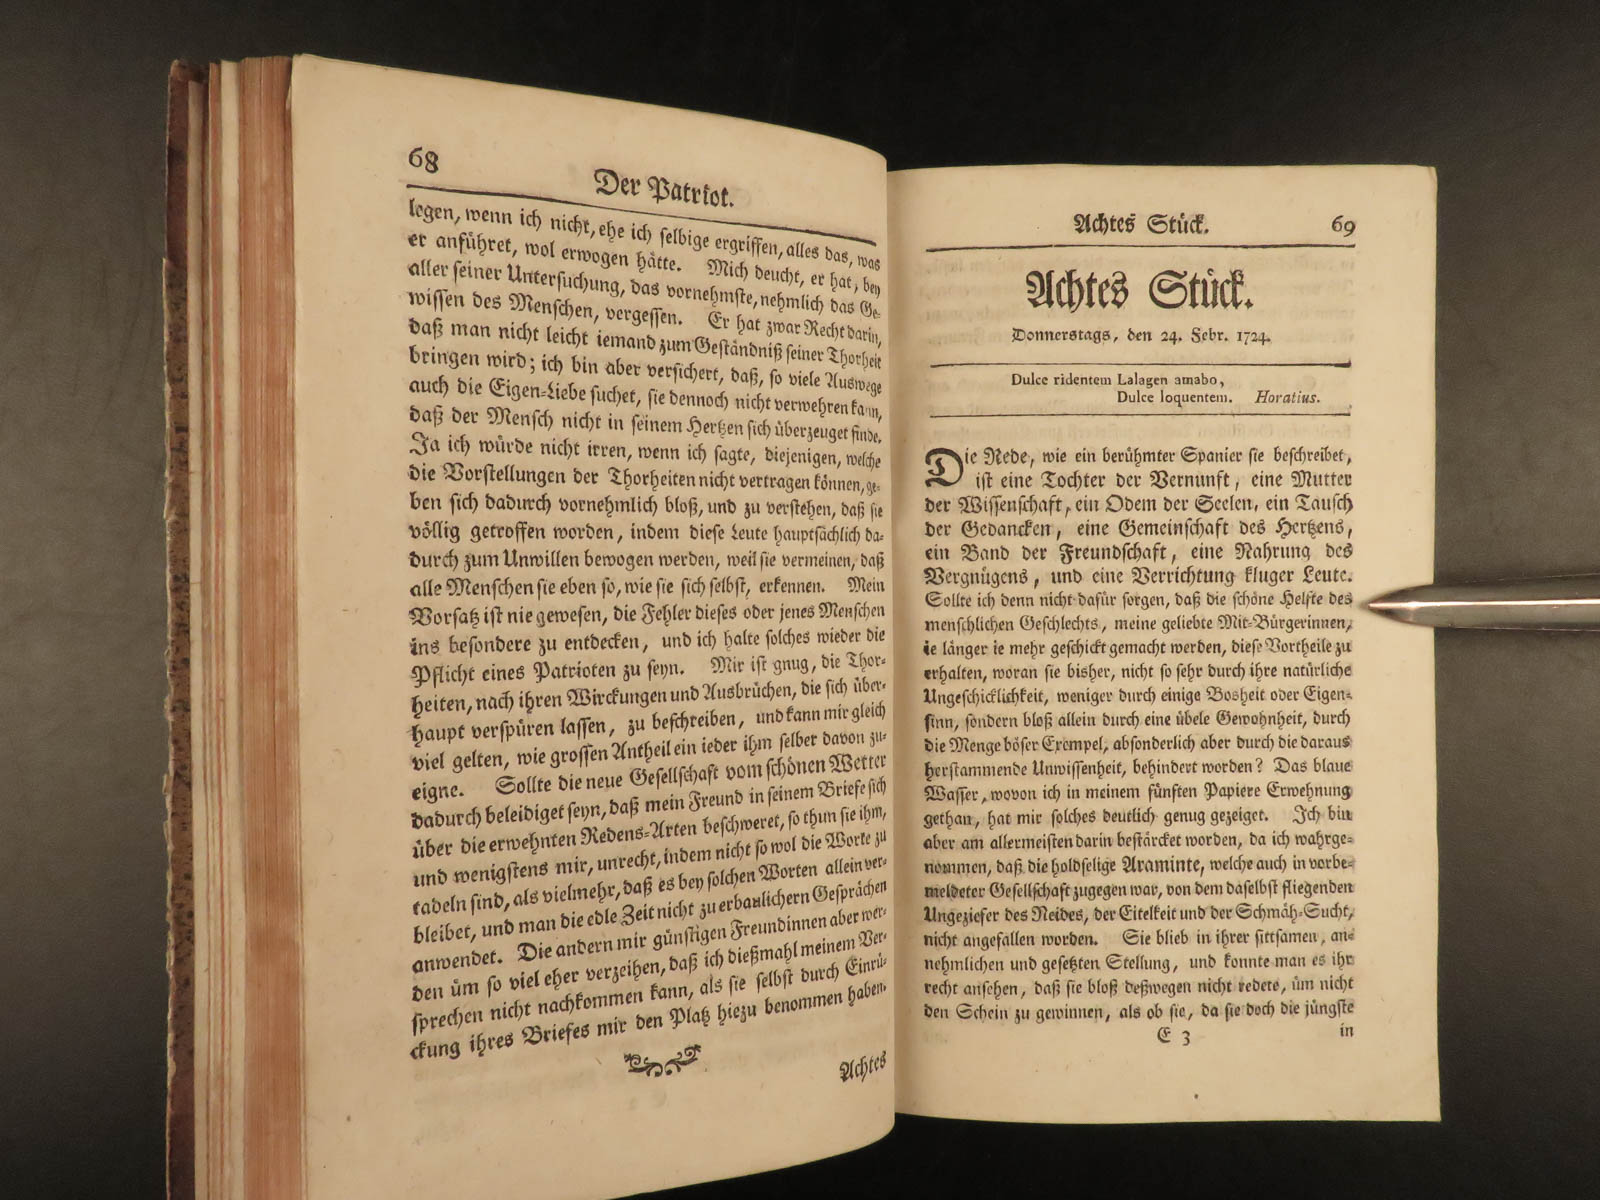 68
Der Patriot.
legen, wenn ich nicht, ehe ich selbige ergriffen, alles das, was
er anführet, wol erwogen hätte. Mich deucht, er hat, bey
aller seiner Untersuchung, das vornehmste, nehmlich das Ge-
wissen des Menschen, vergessen. Er hat zwar Recht darin,
daß man nicht leicht iemand zum Geständniß seiner Thorheit
bringen wird; ich bin aber versichert, daß, so viele Auswege
auch die Eigen-Liebe suchet, sie dennoch nicht verwehren kann,
daß der Mensch nicht in seinem Hertzen sich überzeuget finde.
Ja ich würde nicht irren, wenn ich sagte, diejenigen, welche
die Vorstellungen der Thorheiten nicht vertragen können, ge-
ben sich dadurch vornehmlich bloß, und zu verstehen, daß sie
völlig getroffen worden, indem diese Leute hauptsächlich da-
durch zum Unwillen bewogen werden, weil sie vermeinen, daß
alle Menschen sie eben so, wie sie sich selbst, erkennen. Mein
Vorsatz ist nie gewesen, die Fehler dieses oder jenes Menschen
ins besondere zu entdecken, und ich halte solches wieder die
Pflicht eines Patrioten zu seyn. Mir ist gnug, die Thor-
heiten, nach ihren Wirckungen und Ausbrüchen, die sich über-
haupt verspüren lassen, zu beschreiben, und kann mir gleich
viel gelten, wie grossen Antheil ein ieder ihm selber davon zu-
eigne. Sollte die neue Gesellschaft vom schönen Wetter
dadurch beleidiget seyn, daß mein Freund in seinem Briefe sich
über die erwehnten Redens-Arten beschweret, so thun sie ihm,
und wenigstens mir, unrecht, indem nicht so wol die Worte zu
tadeln sind, als vielmehr, daß es bey solchen Worten allein ver-
bleibet, und man die edle Zeit nicht zu erbaulichern Gesprächen
anwendet. Die andern mir günstigen Freundinnen aber wer-
den üm so viel eher verzeihen, daß ich dießmahl meinem Ver-
sprechen nicht nachkommen kann, als sie selbst durch Einrü-
ckung ihres Briefes mir den Platz hiezu benommen haben.
Achtes
Achtes Stück. 69
Achtes Stück.
Donnerstags, den 24. Febr. 1724.
Dulce ridentem Lalagen amabo,
Dulce loquentem. Horatius.
Die Rede, wie ein berühmter Spanier sie beschreibet,
ist eine Tochter der Vernunft, eine Mutter
der Wissenschaft, ein Odem der Seelen, ein Tausch
der Gedancken, eine Gemeinschaft des Hertzens,
ein Band der Freundschaft, eine Nahrung des
Vergnügens, und eine Verrichtung kluger Leute.
Sollte ich denn nicht dafür sorgen, daß die schöne Helfte des
menschlichen Geschlechts, meine geliebte Mit-Bürgerinnen,
ie länger ie mehr geschickt gemacht werden, diese Vortheile zu
erhalten, woran sie bisher, nicht so sehr durch ihre natürliche
Ungeschicklichkeit, weniger durch einige Bosheit oder Eigen-
sinn, sondern bloß allein durch eine übele Gewohnheit, durch
die Menge böser Exempel, absonderlich aber durch die daraus
herstammende Unwissenheit, behindert worden? Das blaue
Wasser, wovon ich in meinem fünften Papiere Erwehnung
gethan, hat mir solches deutlich genug gezeiget. Ich bin
aber am allermeisten darin bestärcket worden, da ich wahrge-
nommen, daß die holdselige Araminte, welche auch in vorbe-
meldeter Gesellschaft zugegen war, von dem daselbst fliegenden
Ungeziefer des Neides, der Eitelkeit und der Schmäh-Sucht,
nicht angefallen worden. Sie blieb in ihrer sittsamen, an-
nehmlichen und gesetzten Stellung, und konnte man es ihr
recht ansehen, daß sie bloß deßwegen nicht redete, üm nicht
den Schein zu gewinnen, als ob sie, da sie doch die jüngste
E 3 in